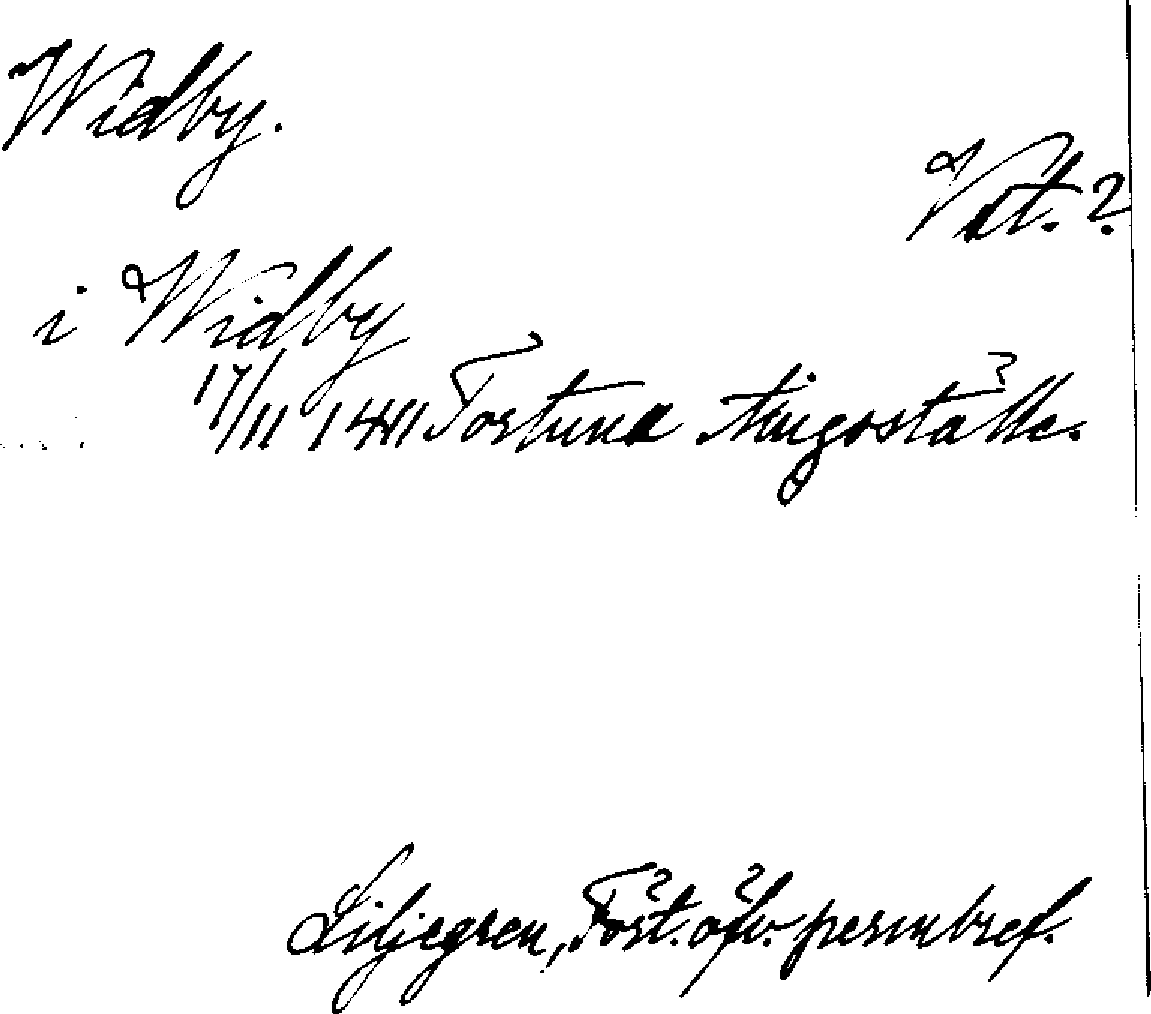 Widby.
Vst. ?
i Widby
17/11 1441 Fortuna tingställe.
Liljegren, Fört. öfv. permbref.